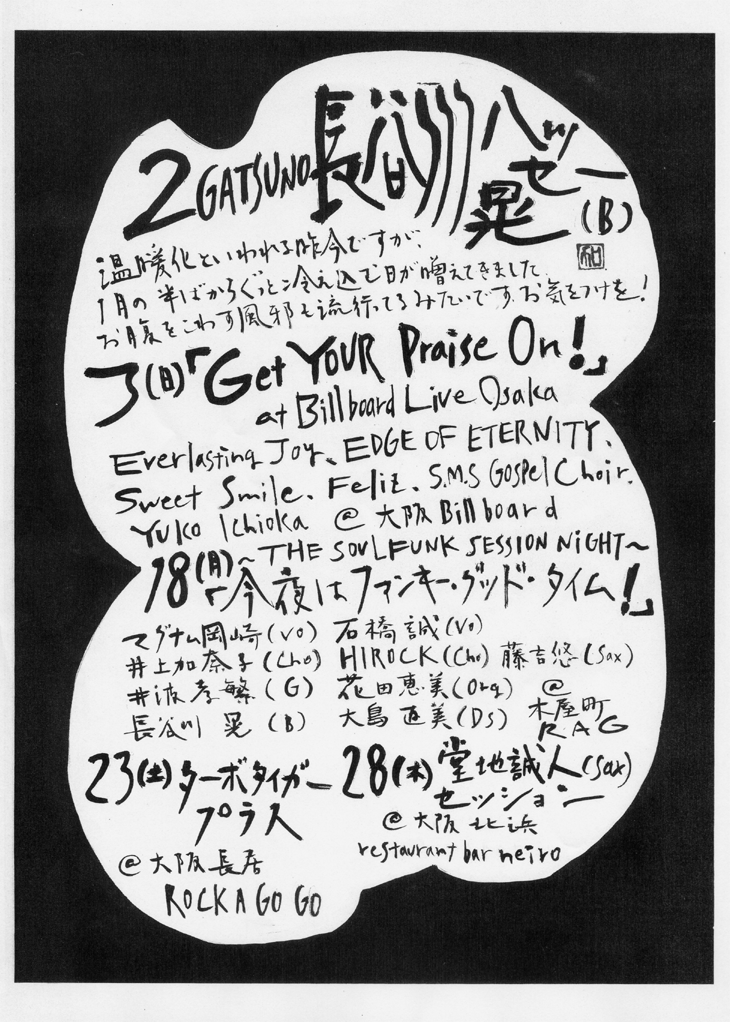 2GATSUNO長谷川ハッセー晃(B)
温暖化といわれる昨今ですが、
1月の半ばからぐっと冷え込む日が増えてきました。
お腹をこわす風邪も流行ってるみたいです。お気をつけを!
3(日)「Get YOUR Praise On!」
at Billboard Live Osaka
Everlasting Joy、EDGE OF ETERNITY、
Sweet Smile、Feliz、S.M.S GOSpel Choir、
YUKO Ichioka @大阪Billboard
18(月)〜THE SOULFUNK SESSION NiGHT〜
「今夜はファンキー・グッド・タイム!」
マグナム岡崎(VO) 石橋誠(VO)
井上加奈子(Cho) HIROCK(Cho) 藤吉悠(Sax)
井波孝繁(G) 花田恵美(Org) @
長谷川晃(B) 大島直美(DS) 木屋町
RAG
23(土)ターボタイガー
プラス
@大阪長居
ROCK A GO GO
28(木)堂地誠人(Sax)
セッション
@大阪北浜
restaurant bar neiro